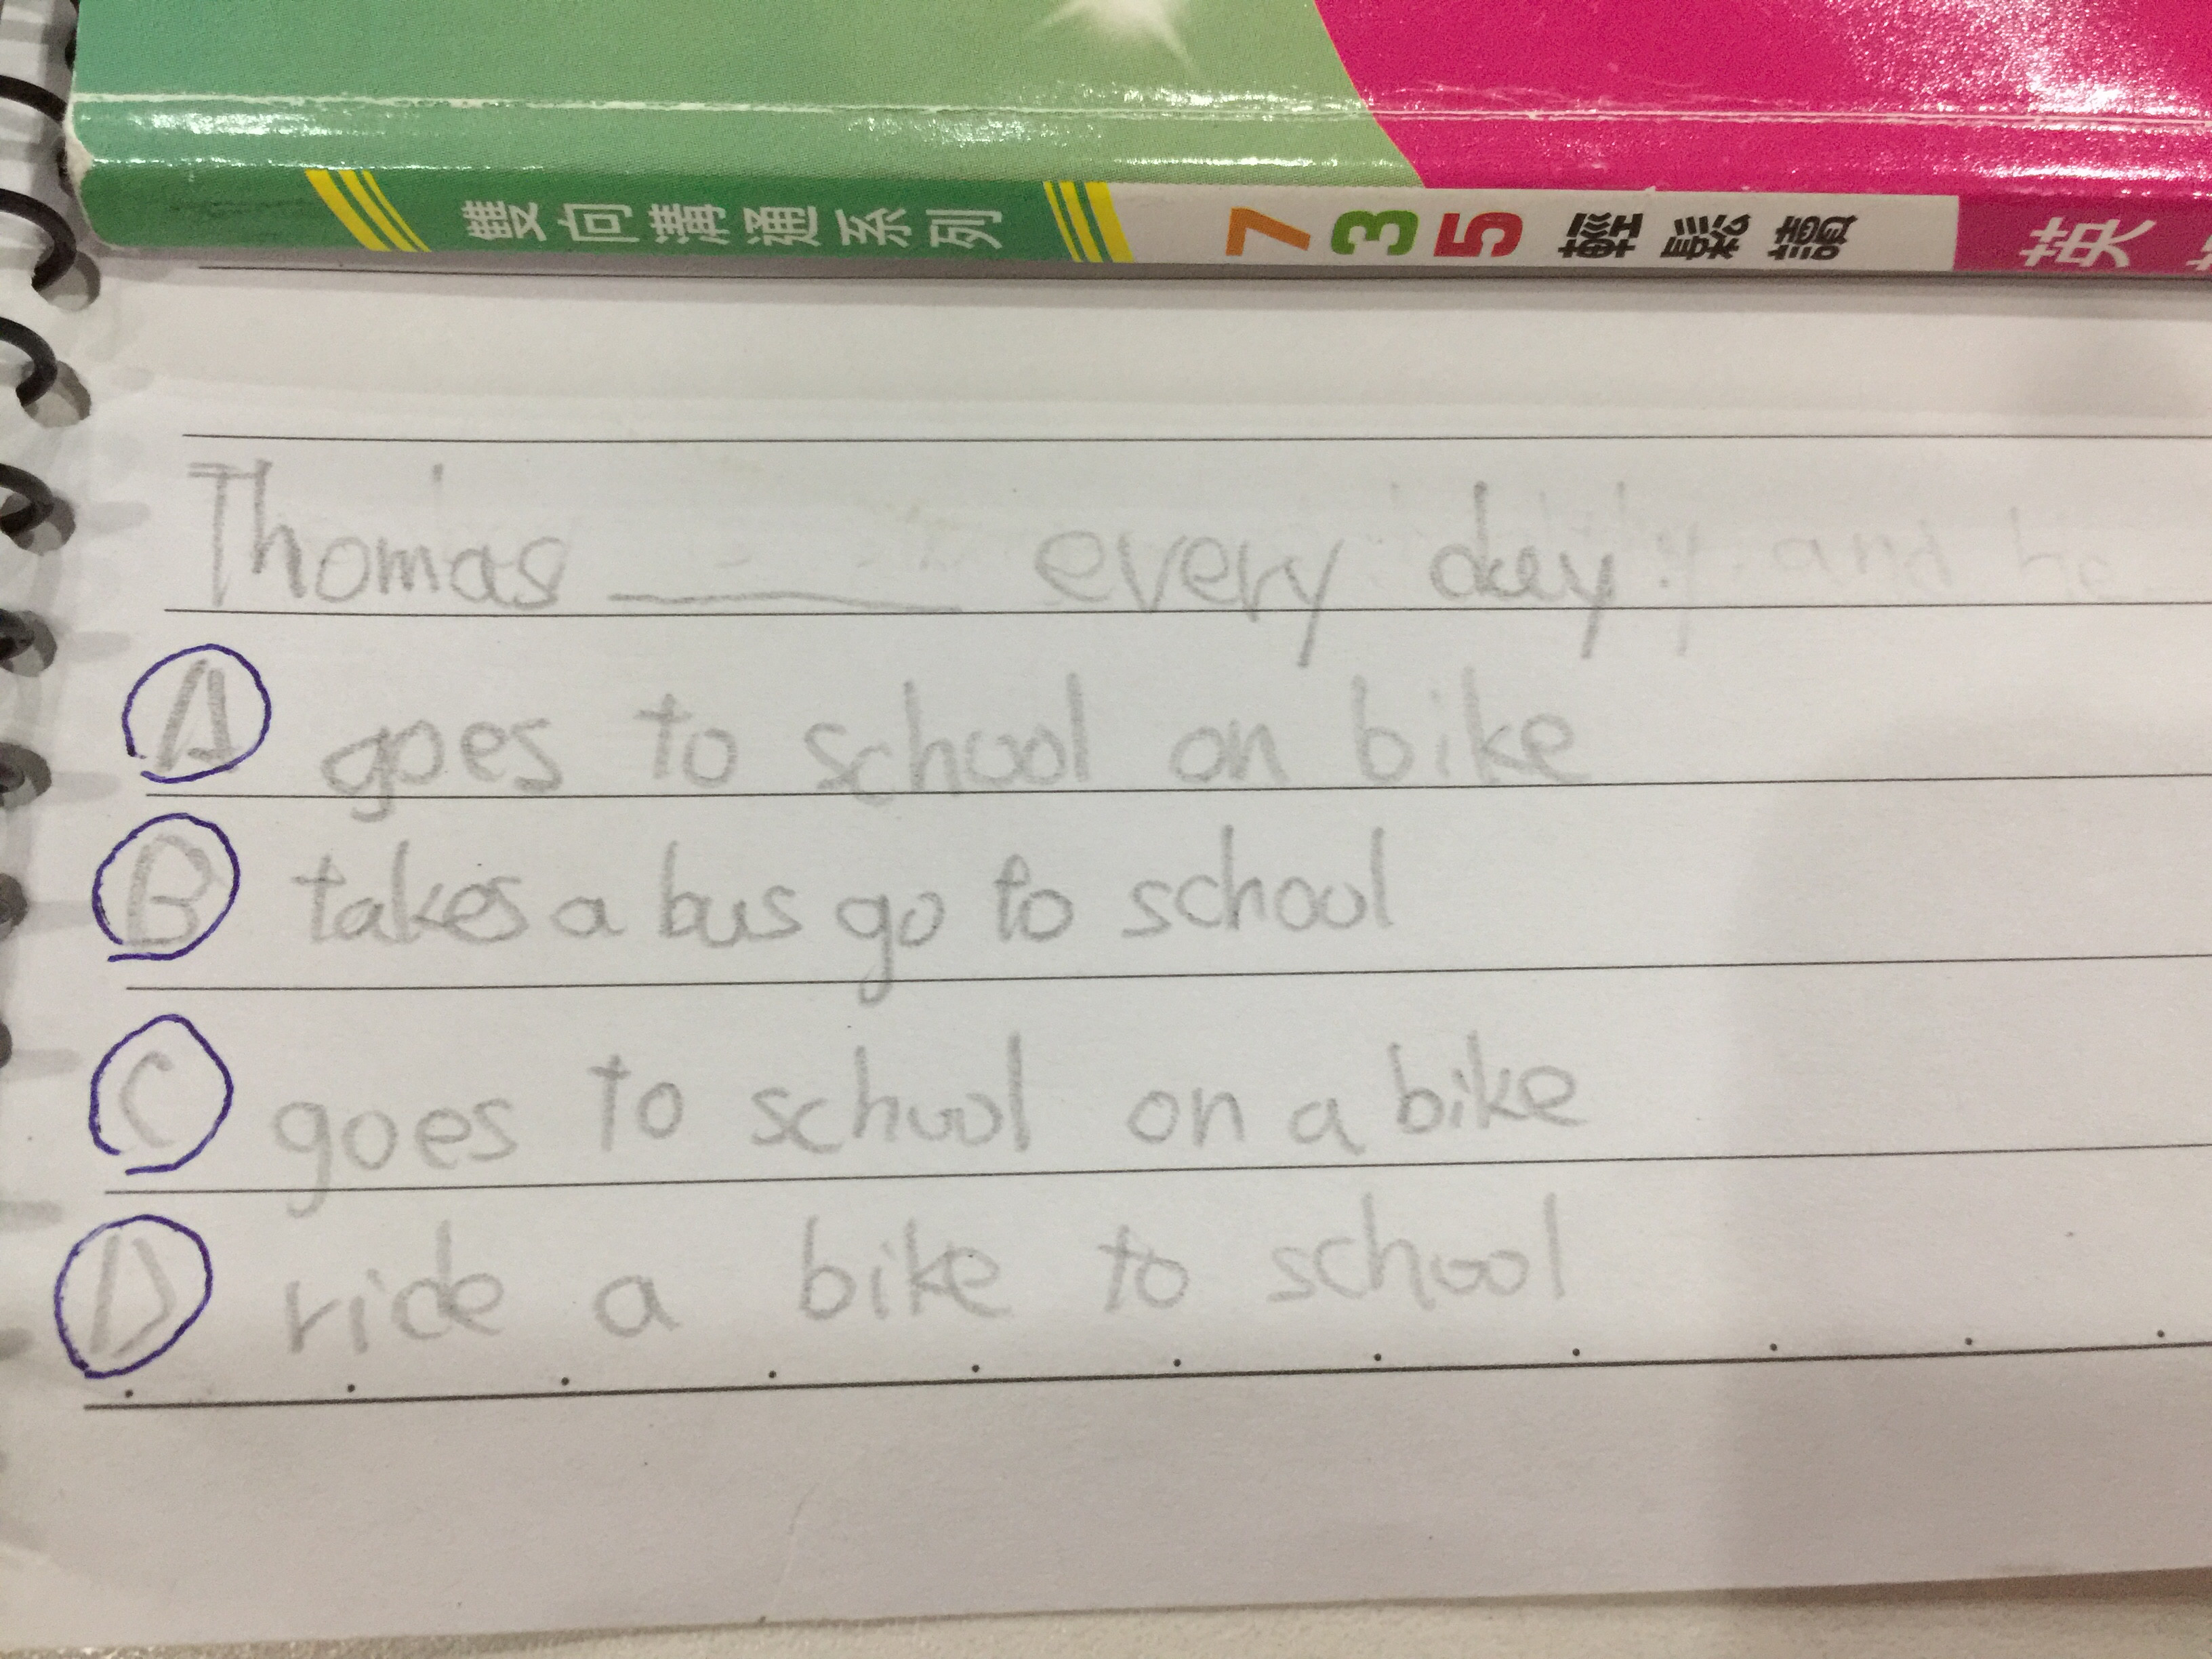 雙向溝通系列 735 輕鬆讀 英
Thomas ______ every day.
A goes to school on bike
B takes a bus go to school
C goes to school on a bike
D ride a bike to school